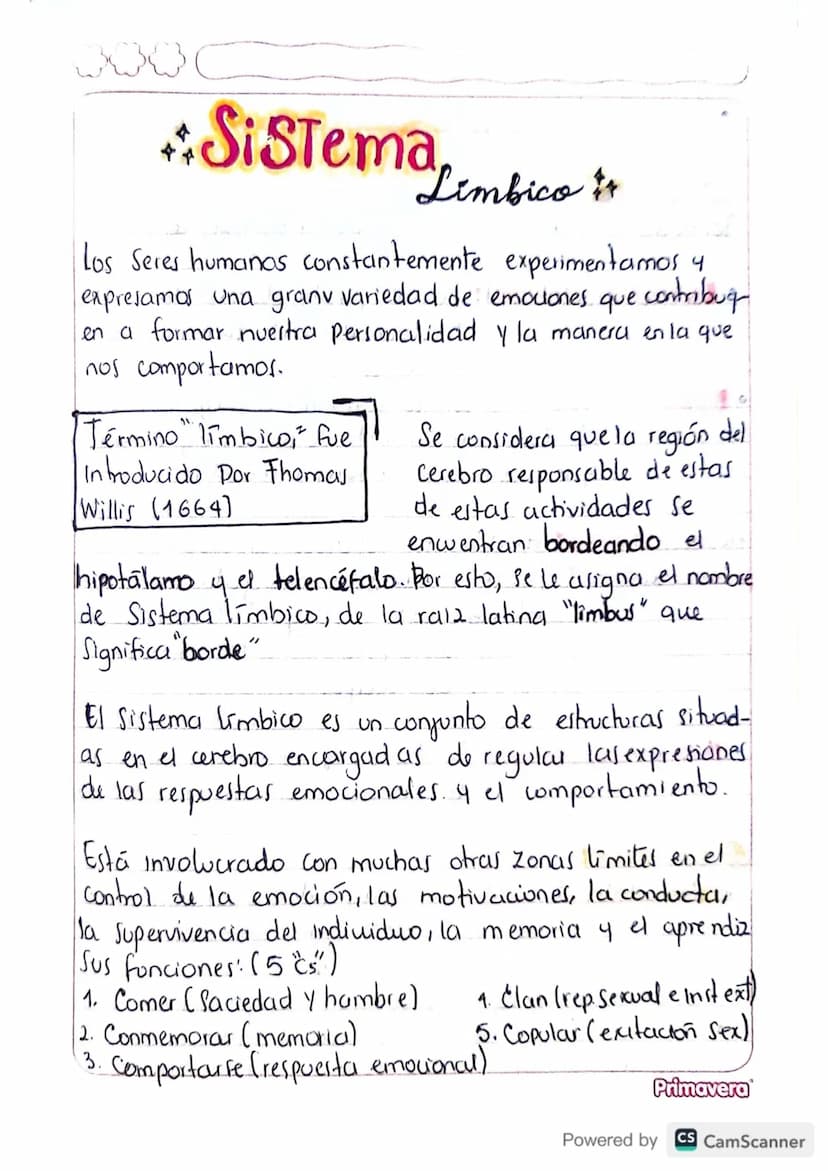 Sistema
Límbico
Los seres humanos constantemente experimentamos y
expresamos una granv variedad de emociones que contribuy-
en a formar nuestra personalidad y la manera en la que
nos comportamos.
Término "límbico," fue
Introducido Por Thomas
Willis (1664)
Se considera que la región del
cerebro responsable de estas
de estas actividades se
encuentran bordeando el
hipotálamo y el telencéfalo. Por esto, se le asigna el nombre
de Sistema límbico, de la raíz latina "limbus" que
Significa "borde"
El Sistema límbico es un conjunto de estructuras situad-
as en el cerebro encargadas de regular las expresiones
de las respuestas emocionales. y el comportamiento.
Está involucrado con muchas otras zonas límites en el
control de la emoción, las motivaciones, la conducta,
la supervivencia del individuo, la memoria y el aprendiz
Sus funciones: (5 "Cs")
1. Comer (Saciedad y hambre)
2. Conmemorar (memoria)
3. Comportarse (respuesta emocional)
4. Clan (rep. sexual e inst ext)
5. Copular (exitación sex)
Primavera
Powered by CS CamScanner